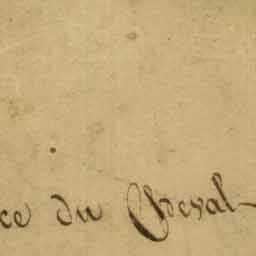 ce du Cheval